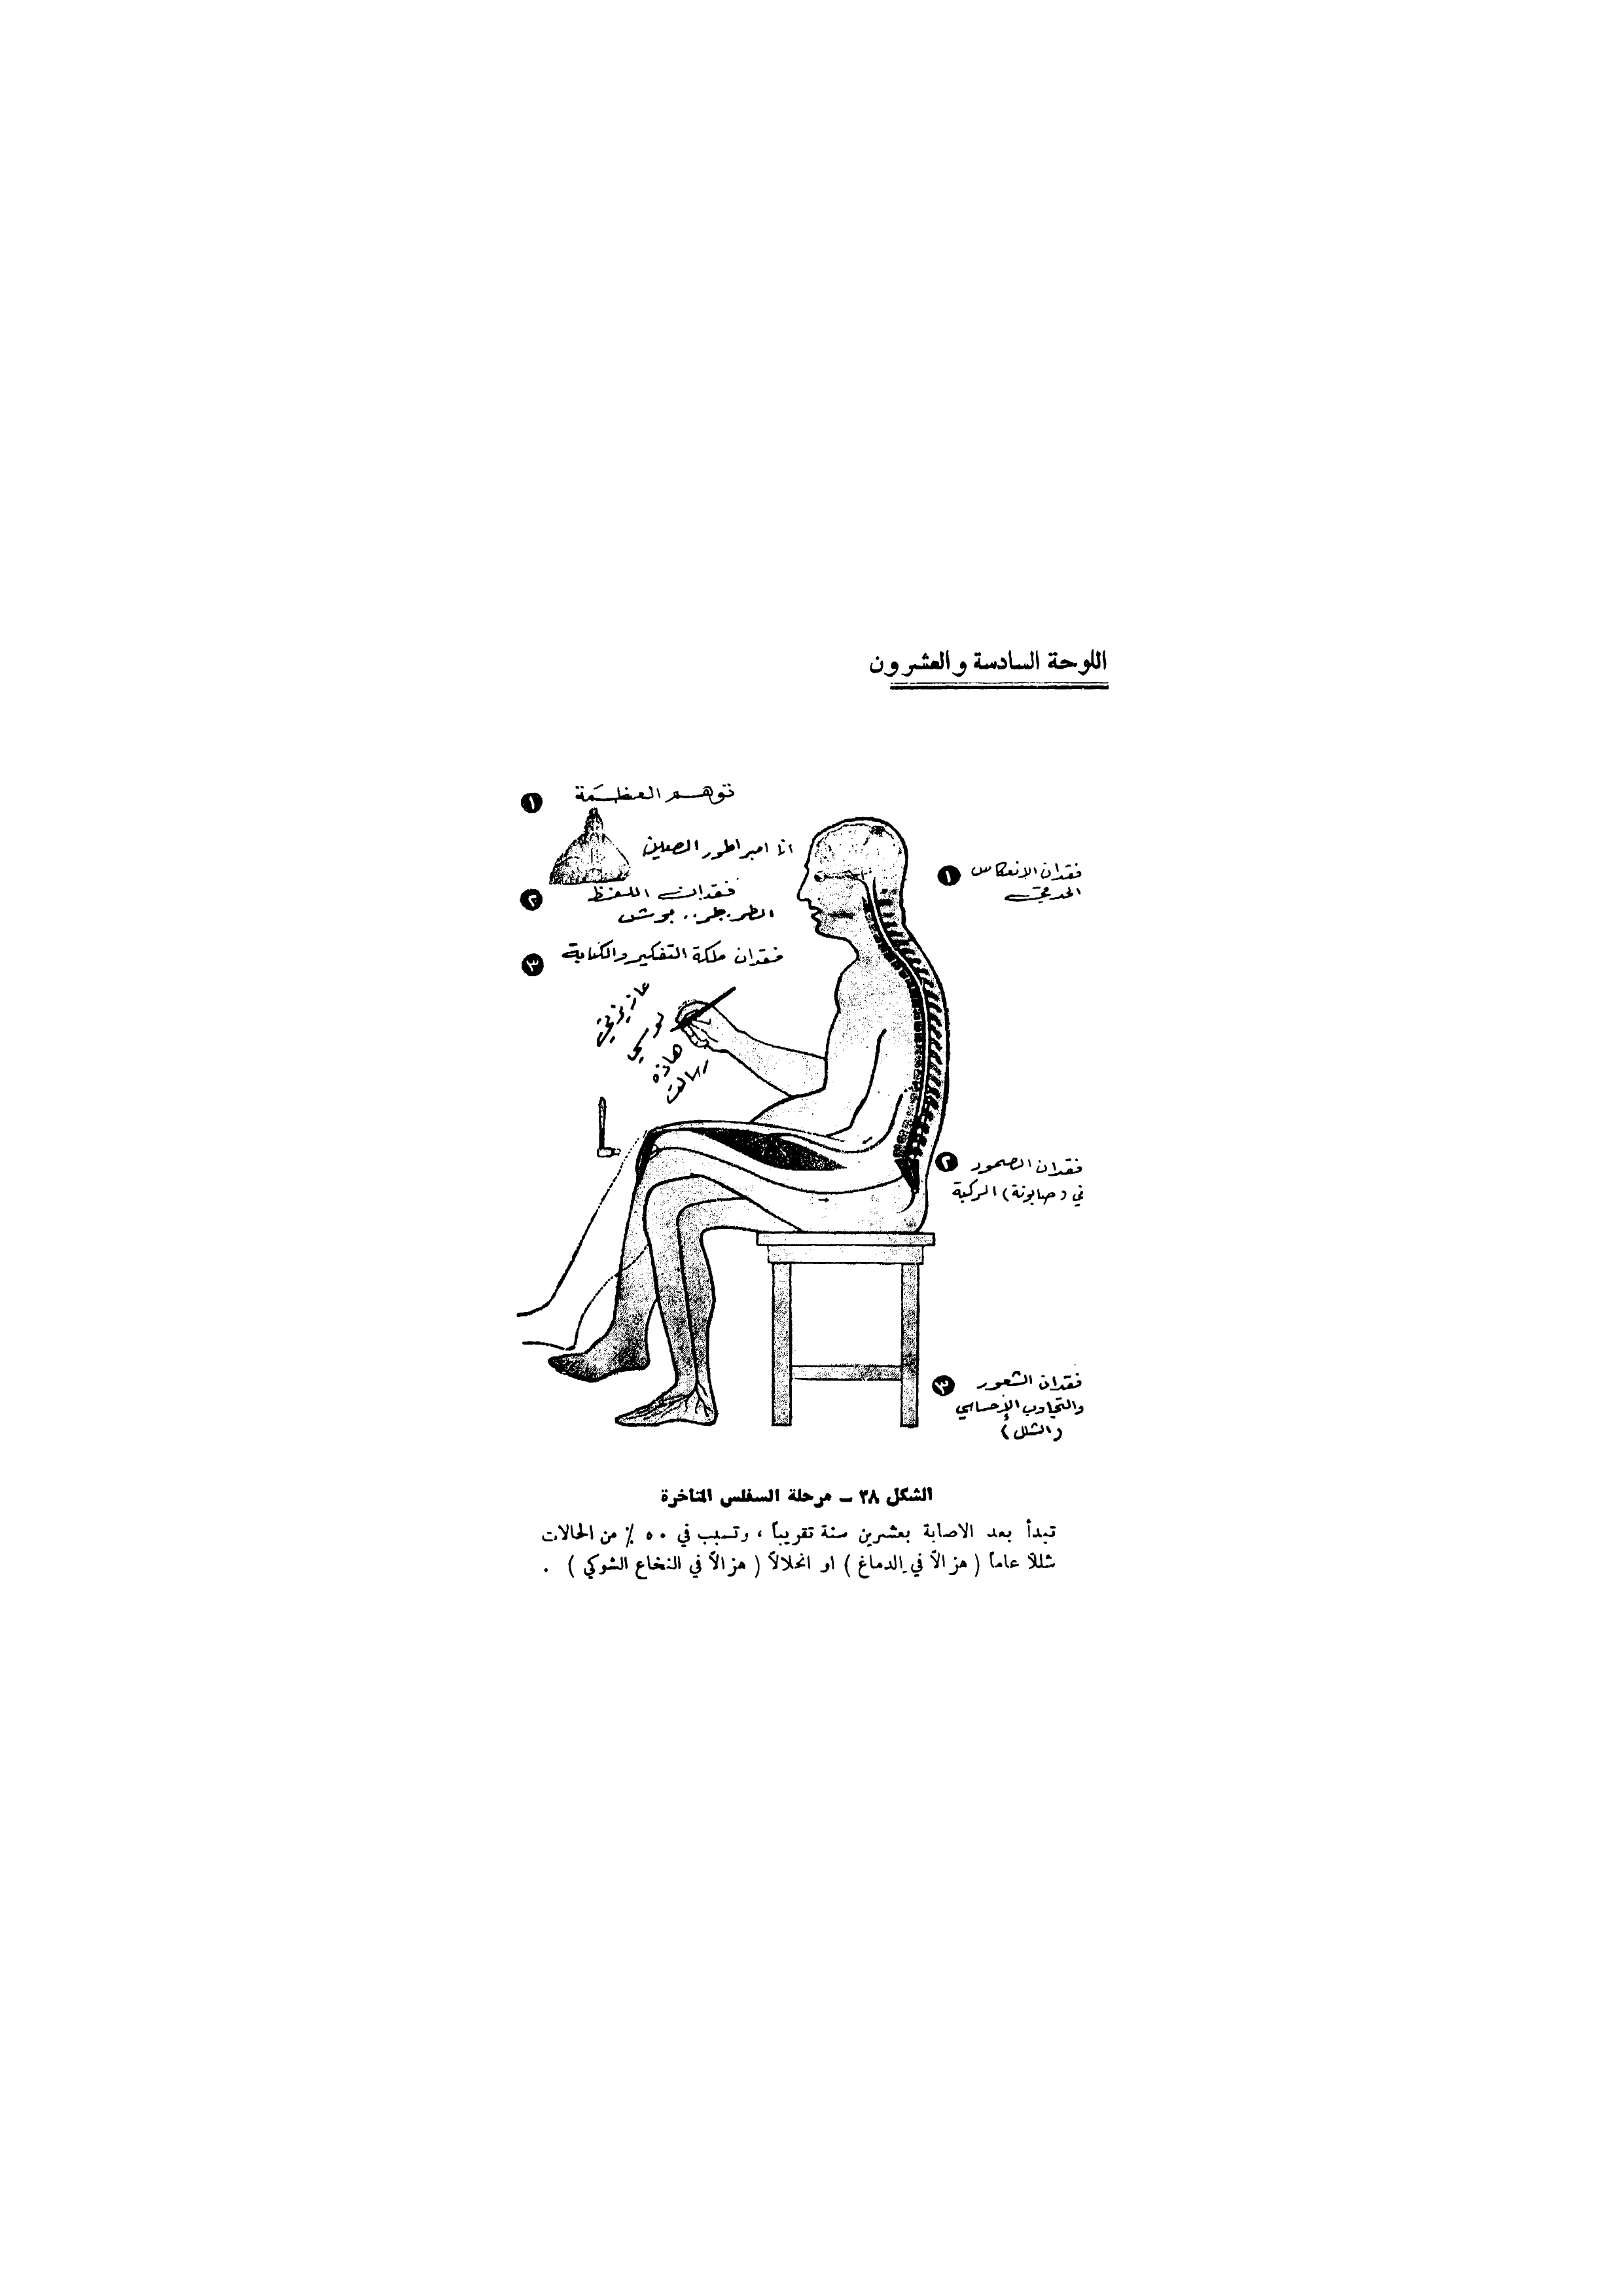 اللوحة السادسة والعشرون
١ توهم العظمة
انا امبراطور الصين
٢ فقدان اللفظ
٣ فقدان ملكة التفكير والكتابة
عازيزتي
لوسي
هاذه
رسالت
١ فقدان الانعكاس
الحدقي
٢ فقدان الصمود
في (صابونة) الركبة
٣ فقدان الشعور
والتجاوب الإحساسي
(الشلل)
الشكل ٣٨ - مرحلة السفلس المتاخرة
تبدأ بعد الاصابة بعشرين سنة تقريباً ، وتسبب في ٥٠ ٪ من الحالات
شللاً عاماً ( هزالاً في الدماغ ) او انحلالاً ( هزالاً في النخاع الشوكي ) .